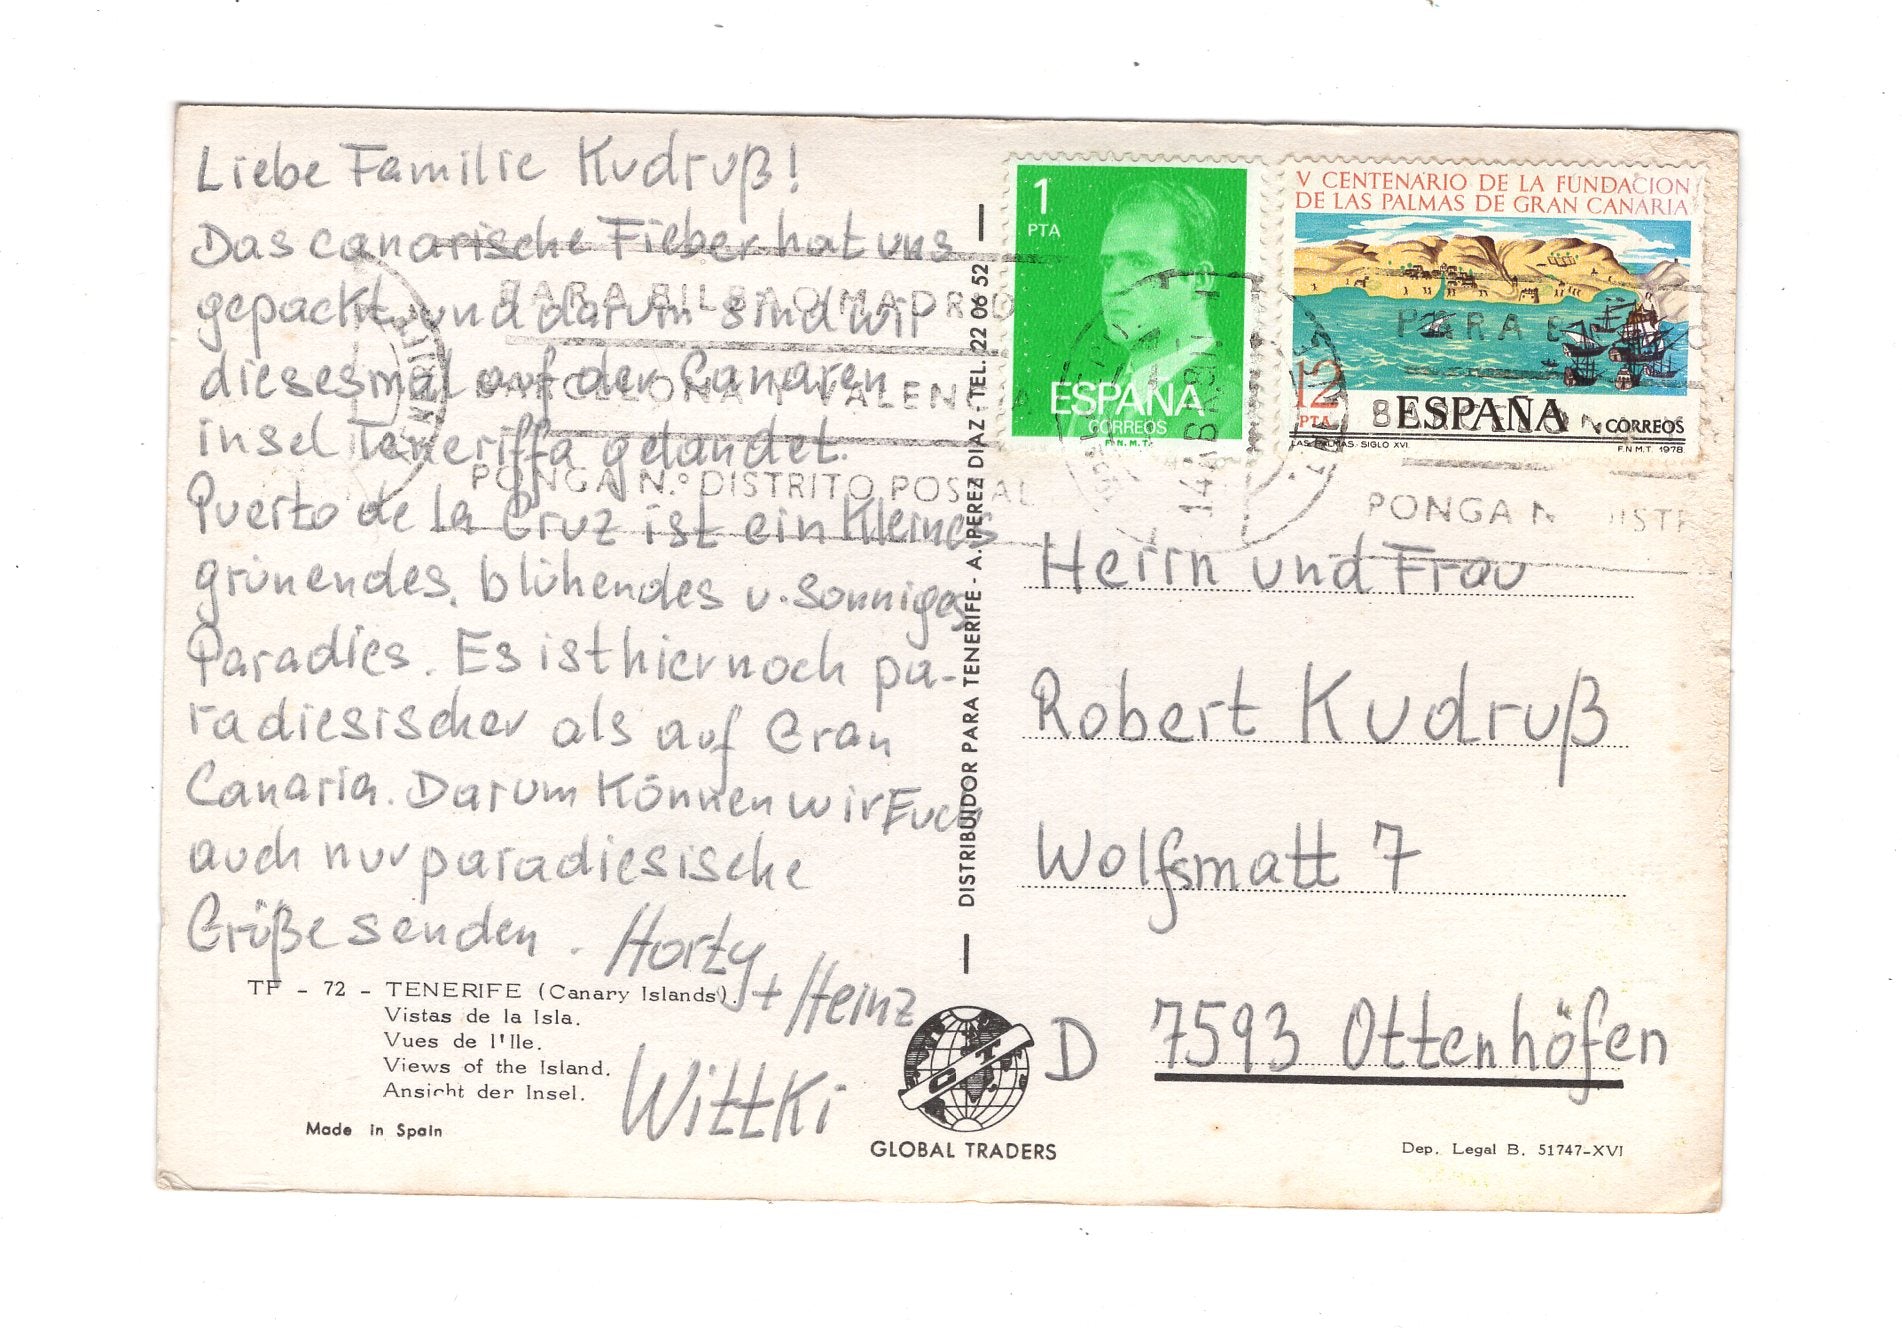 Liebe Familie Kudruß!
Das canarische Fieber hat uns
gepackt und darum sind wir
diesesmal auf der Canaren
insel Teneriffa gelandet.
Puerto de la Cruz ist ein kleines
grünendes, blühendes u. sonniges
Paradies. Es ist hier noch pa-
radiesischer als auf Gran
Canaria. Darum können wir Euch
auch nur paradiesische
Grüße senden. Horty
+ Heinz
Wittki
TF - 72 - TENERIFE (Canary Islands).
Vistas de la Isla.
Vues de l'Ile.
Views of the Island.
Ansicht der Insel.
Made in Spain
DISTRIBUIDOR PARA TENERIFE - A. PEREZ DIAZ - TEL. 22 06 52
GLOBAL TRADERS
1
PTA
ESPAÑA
CORREOS
F.N.M.T.
V CENTENARIO DE LA FUNDACION
DE LAS PALMAS DE GRAN CANARIA
12
PTA
ESPAÑA
CORREOS
LAS PALMAS. SIGLO XVI
F.N.M.T. 1978
PARA BILBAO MADRID
BARCELONA Y VALENCIA
PONGA N.º DISTRITO POSTAL
PARA B
PONGA N DISTR
Herrn und Frau
Robert Kudruß
Wolfsmatt 7
D 7593 Ottenhöfen
Dep. Legal B. 51747-XVI